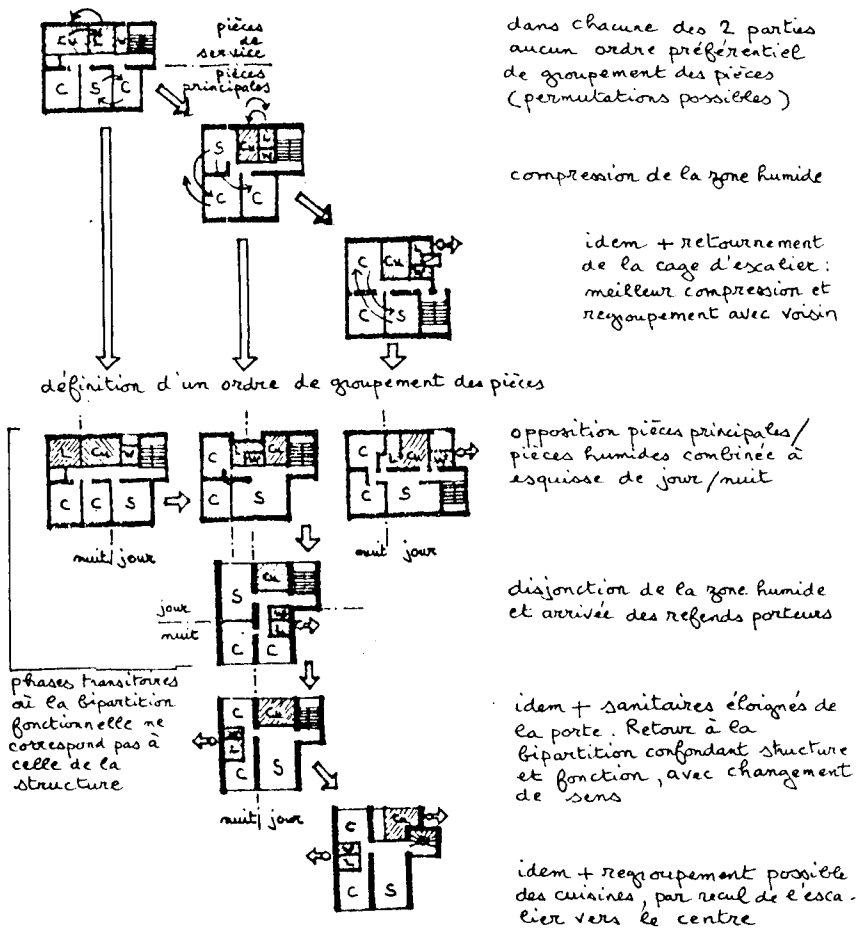 pièces
de
service
pièces
principales
dans chacune des 2 parties
aucun ordre préférentiel
de groupement des pièces
(permutations possibles)
Cu L W
C S C
S Cu L W
C C
compression de la zone humide
C Cu L W
C S
idem + retournement
de la cage d'escalier :
meilleur compression et
regroupement avec voisin
définition d'un ordre de groupement des pièces
L Cu W
C C S
nuit/jour
C L W Cu
C S
C L Cu W
C S
nuit jour
opposition pièces principales/
pièces humides combinée à
esquisse de jour/nuit
S Cu
jour
nuit
W L
C C
disjonction de la zone humide
et arrivée des refends porteurs
phases transitoires
où la bipartition
fonctionnelle ne
correspond pas à
celle de la
structure
C Cu
W L
C S
nuit/jour
idem + sanitaires éloignés de
la porte. Retour à la
bipartition confondant structure
et fonction, avec changement
de sens
C Cu
W L
C S
idem + regroupement possible
des cuisines, par recul de l'esca-
lier vers le centre